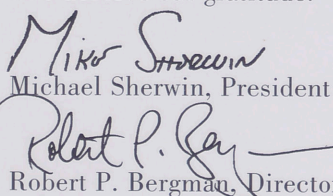 Mike Sherwin
Michael Sherwin, President
Robert P. Ber
Robert P. Bergman, Directo